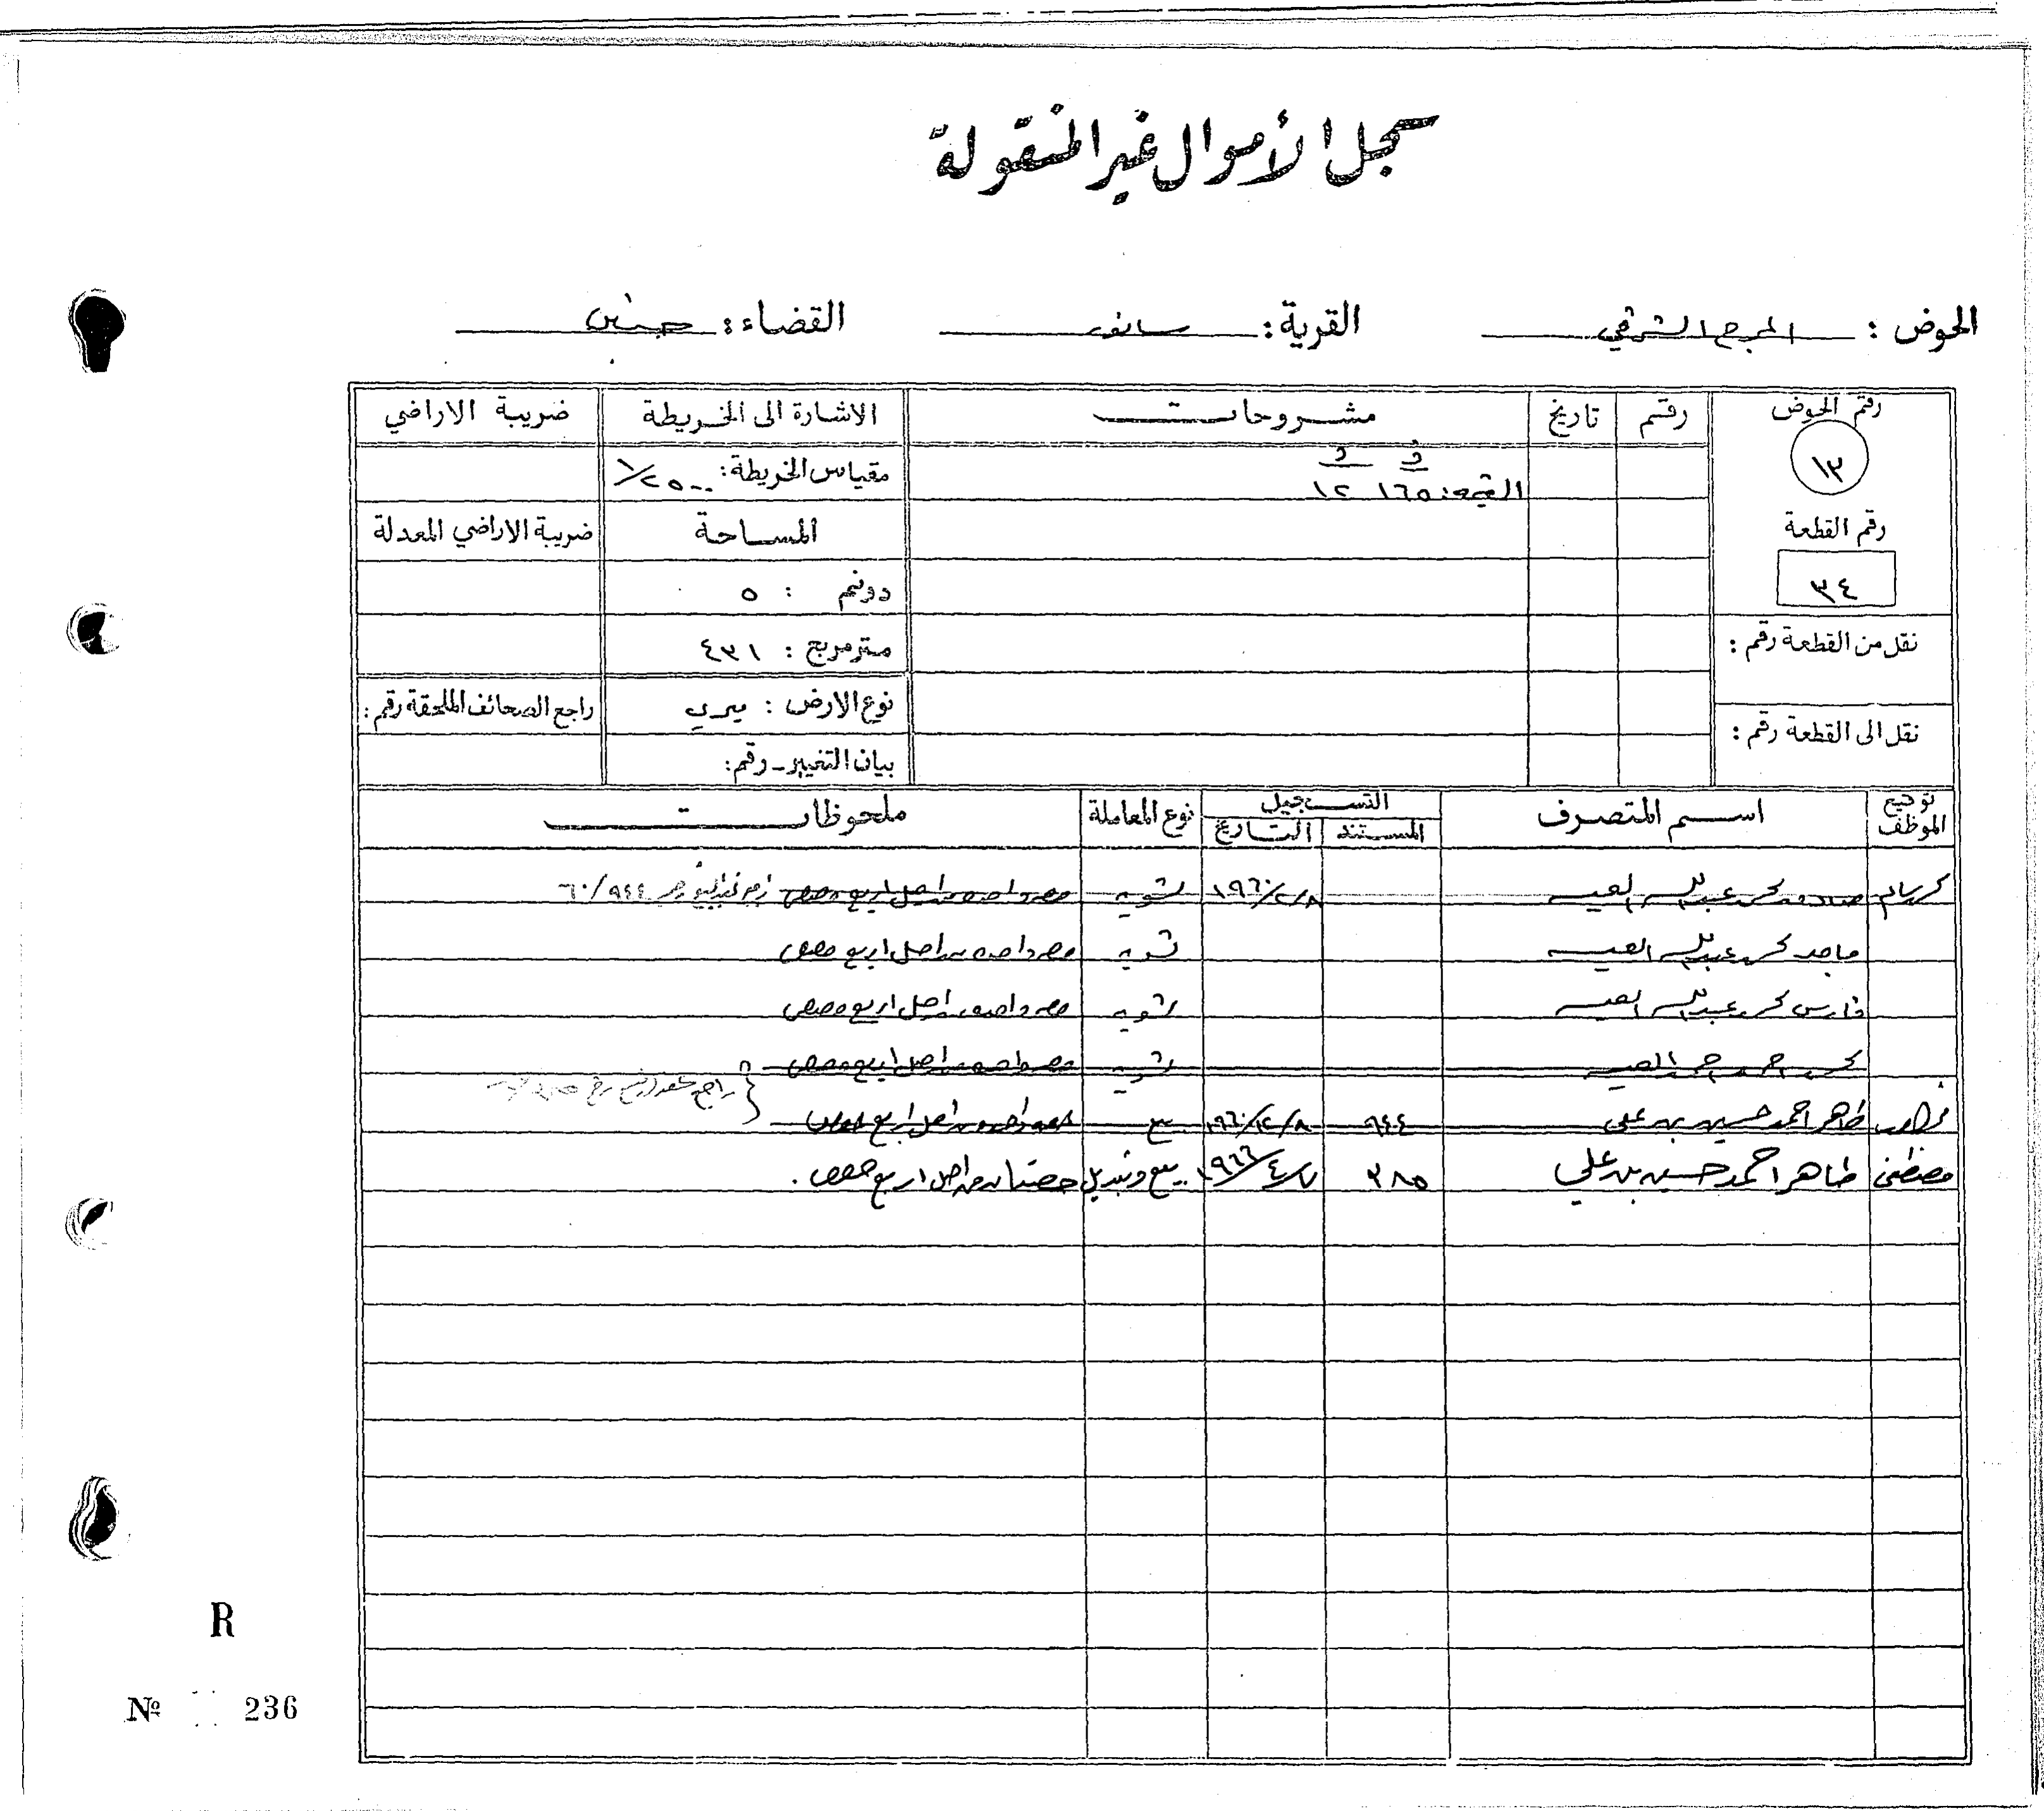 سجل الأموال غير المنقولة
الحوض : المرج الشرقي القرية : سانور القضاء : جنين
رقم الحوض رقم تاريخ مشروحات الاشارة الى الخريطة ضريبة الاراضي
١٣ القيمة: ١٦٥ ١٢ مقياس الخريطة: ١/٢٥٠٠
رقم القطعة المساحة ضريبة الاراضي المعدلة
٣٤ دونم : ٥
نقل من القطعة رقم : متر مربع : ٤٣١
نوع الارض : ميري راجع الصحائف الملحقة رقم :
نقل الى القطعة رقم : بيان التغيير - رقم:
توقيع الموظف اسم المتصرف التسجيل نوع المعاملة ملحوظات
المستند التاريخ
محمد عبدالله ١٩٦٠/٢/٨ تسوية حصة واحدة من اصل اربع حصص ٦٠/٩٤٤
ماجد محمد عبدالله تسوية حصة واحدة من اصل اربع حصص
فارس محمد عبدالله تسوية حصة واحدة من اصل اربع حصص
تسوية حصة واحدة من اصل اربع حصص
طاهر احمد حسين بن علي ٩٤٤ ١٩٦٠/١٢/٨ بيع حصة واحدة من اصل اربع حصص
مصطفى طاهر احمد حسين بن علي ٣٨٥ ١٩٦٦/٤/٧ بيع وتبديل حصتان من اصل اربع حصص .
R
Nº 236